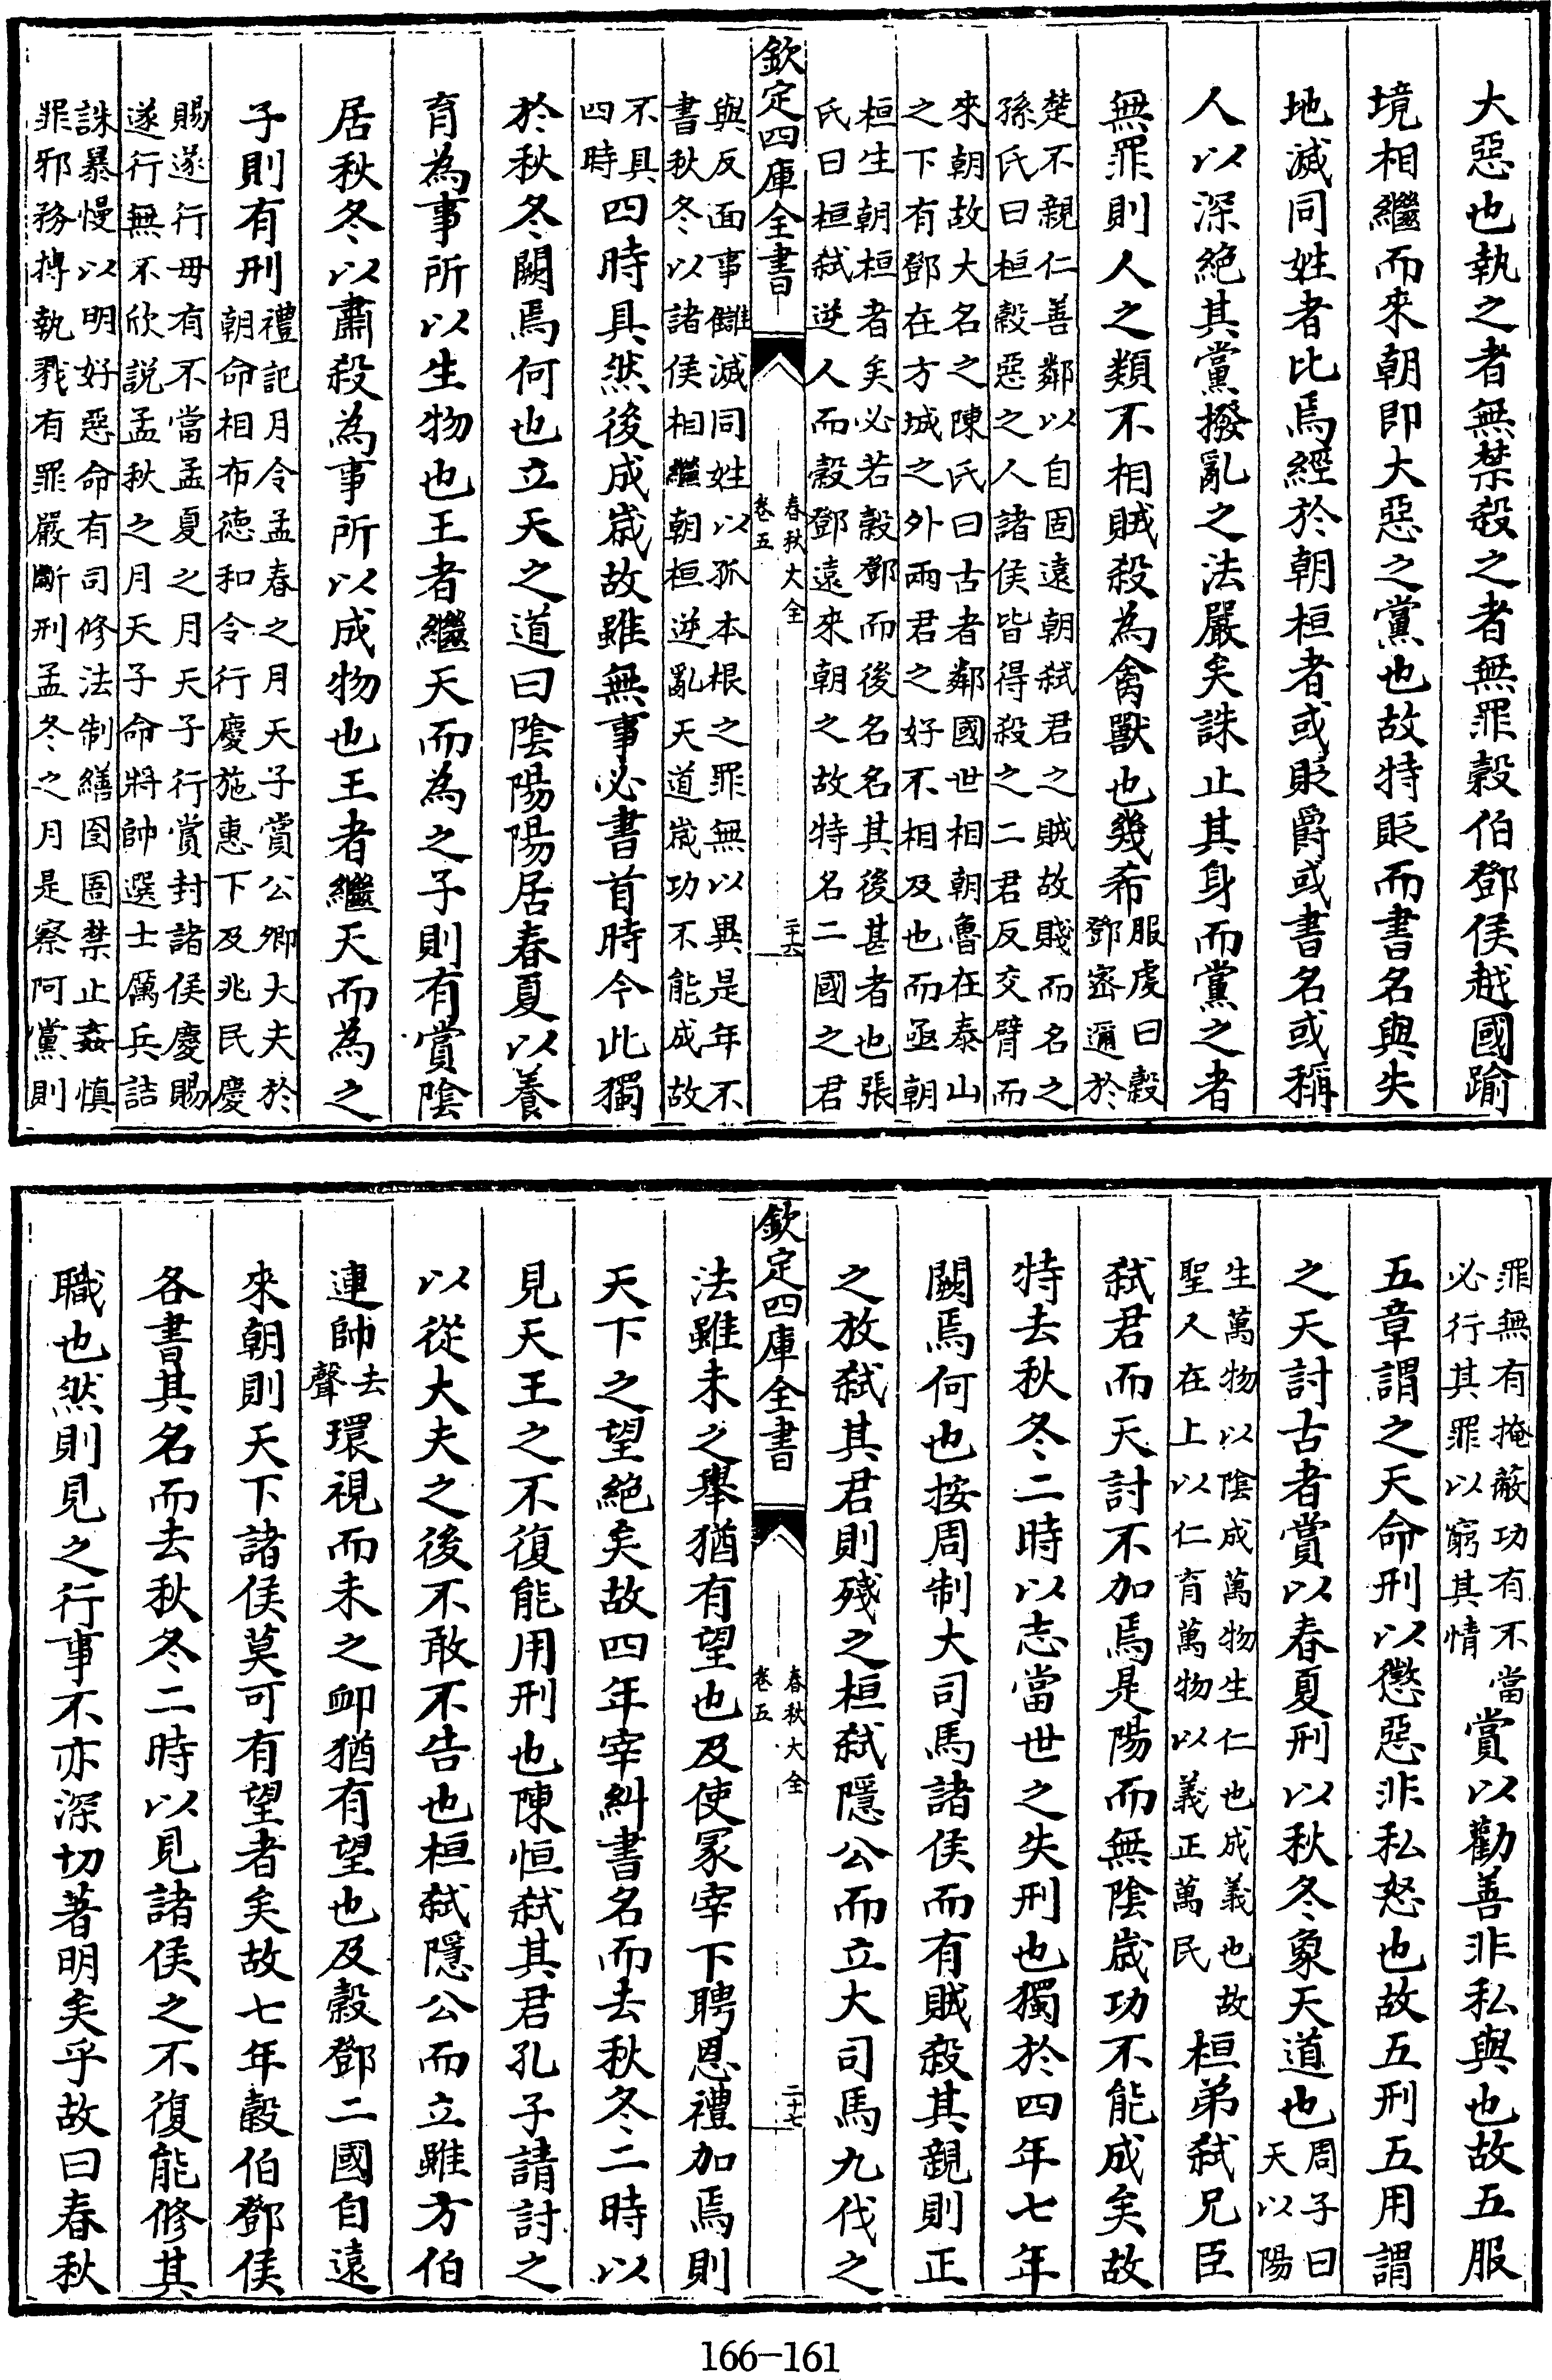 大惡也執之者無禁殺之者無罪穀伯鄧侯越國踰
境相繼而來朝即大惡之黨也故特貶而書名與失
地滅同姓者比焉經於朝桓者或貶爵或書名或稱
人以深絶其黨撥亂之法嚴矣誅止其身而黨之者
無罪則人之類不相賊殺為禽獸也幾希
服䖍曰穀
鄧密邇於
楚不親仁善鄰以自固遠朝弑君之賊故賤而名之
孫氏曰桓殺惡之人諸侯皆得殺之二君反交臂而
來朝故大名之陳氏曰古者鄰國世相朝魯在泰山
之下有鄧在方城之外兩君之好不相及也而亟朝
桓生朝桓者矣必若穀鄧而後名名其後甚者也張
氏曰桓弑逆人而穀鄧遠來朝之故特名二國之君
欽定四庫全書
春秋大全
卷五
二十六
與反面事讎滅同姓以孤本根之罪無以異是年不
書秋冬以諸侯相繼朝桓逆亂天道嵗功不能成故
不具
四時
四時具然後成嵗故雖無事必書首時今此獨
於秋冬闕焉何也立天之道曰隂陽陽居春夏以養
育為事所以生物也王者繼天而為之子則有賞隂
居秋冬以肅殺為事所以成物也王者繼天而為之
子則有刑
禮記月令孟春之月天子賞公卿大夫於
朝命相布德和令行慶施惠下及兆民慶
賜遂行毋有不當孟夏之月天子行賞封諸侯慶賜
遂行無不欣説孟秋之月天子命將帥選士厲兵詰
誅暴慢以明好惡命有司修法制繕囹圄禁止姦慎
罪邪務搏執戮有罪嚴斷刑孟冬之月是察阿黨則
罪無有掩蔽功有不當
必行其罪以窮其情
賞以勸善非私與也故五服
五章謂之天命刑以懲惡非私怒也故五刑五用謂
之天討古者賞以春夏刑以秋冬象天道也
周子曰
天以陽
生萬物以隂成萬物生仁也成義也故
聖人在上以仁育萬物以義正萬民
桓弟弑兄臣
弑君而天討不加焉是陽而無隂嵗功不能成矣故
特去秋冬二時以志當世之失刑也獨於四年七年
闕焉何也按周制大司馬諸侯而有賊殺其親則正
之放弑其君則殘之桓弑隱公而立大司馬九伐之
欽定四庫全書
春秋大全
卷五
二十七
法雖未之舉猶有望也及使冢宰下聘恩禮加焉則
天下之望絶矣故四年宰糾書名而去秋冬二時以
見天王之不復能用刑也陳恒弑其君孔子請討之
以從大夫之後不敢不告也桓弑隱公而立雖方伯
連帥
去
聲
環視而未之卹猶有望也及穀鄧二國自遠
來朝則天下諸侯莫可有望者矣故七年穀伯鄧侯
各書其名而去秋冬二時以見諸侯之不復能修其
職也然則見之行事不亦深切著明矣乎故曰春秋
166-161